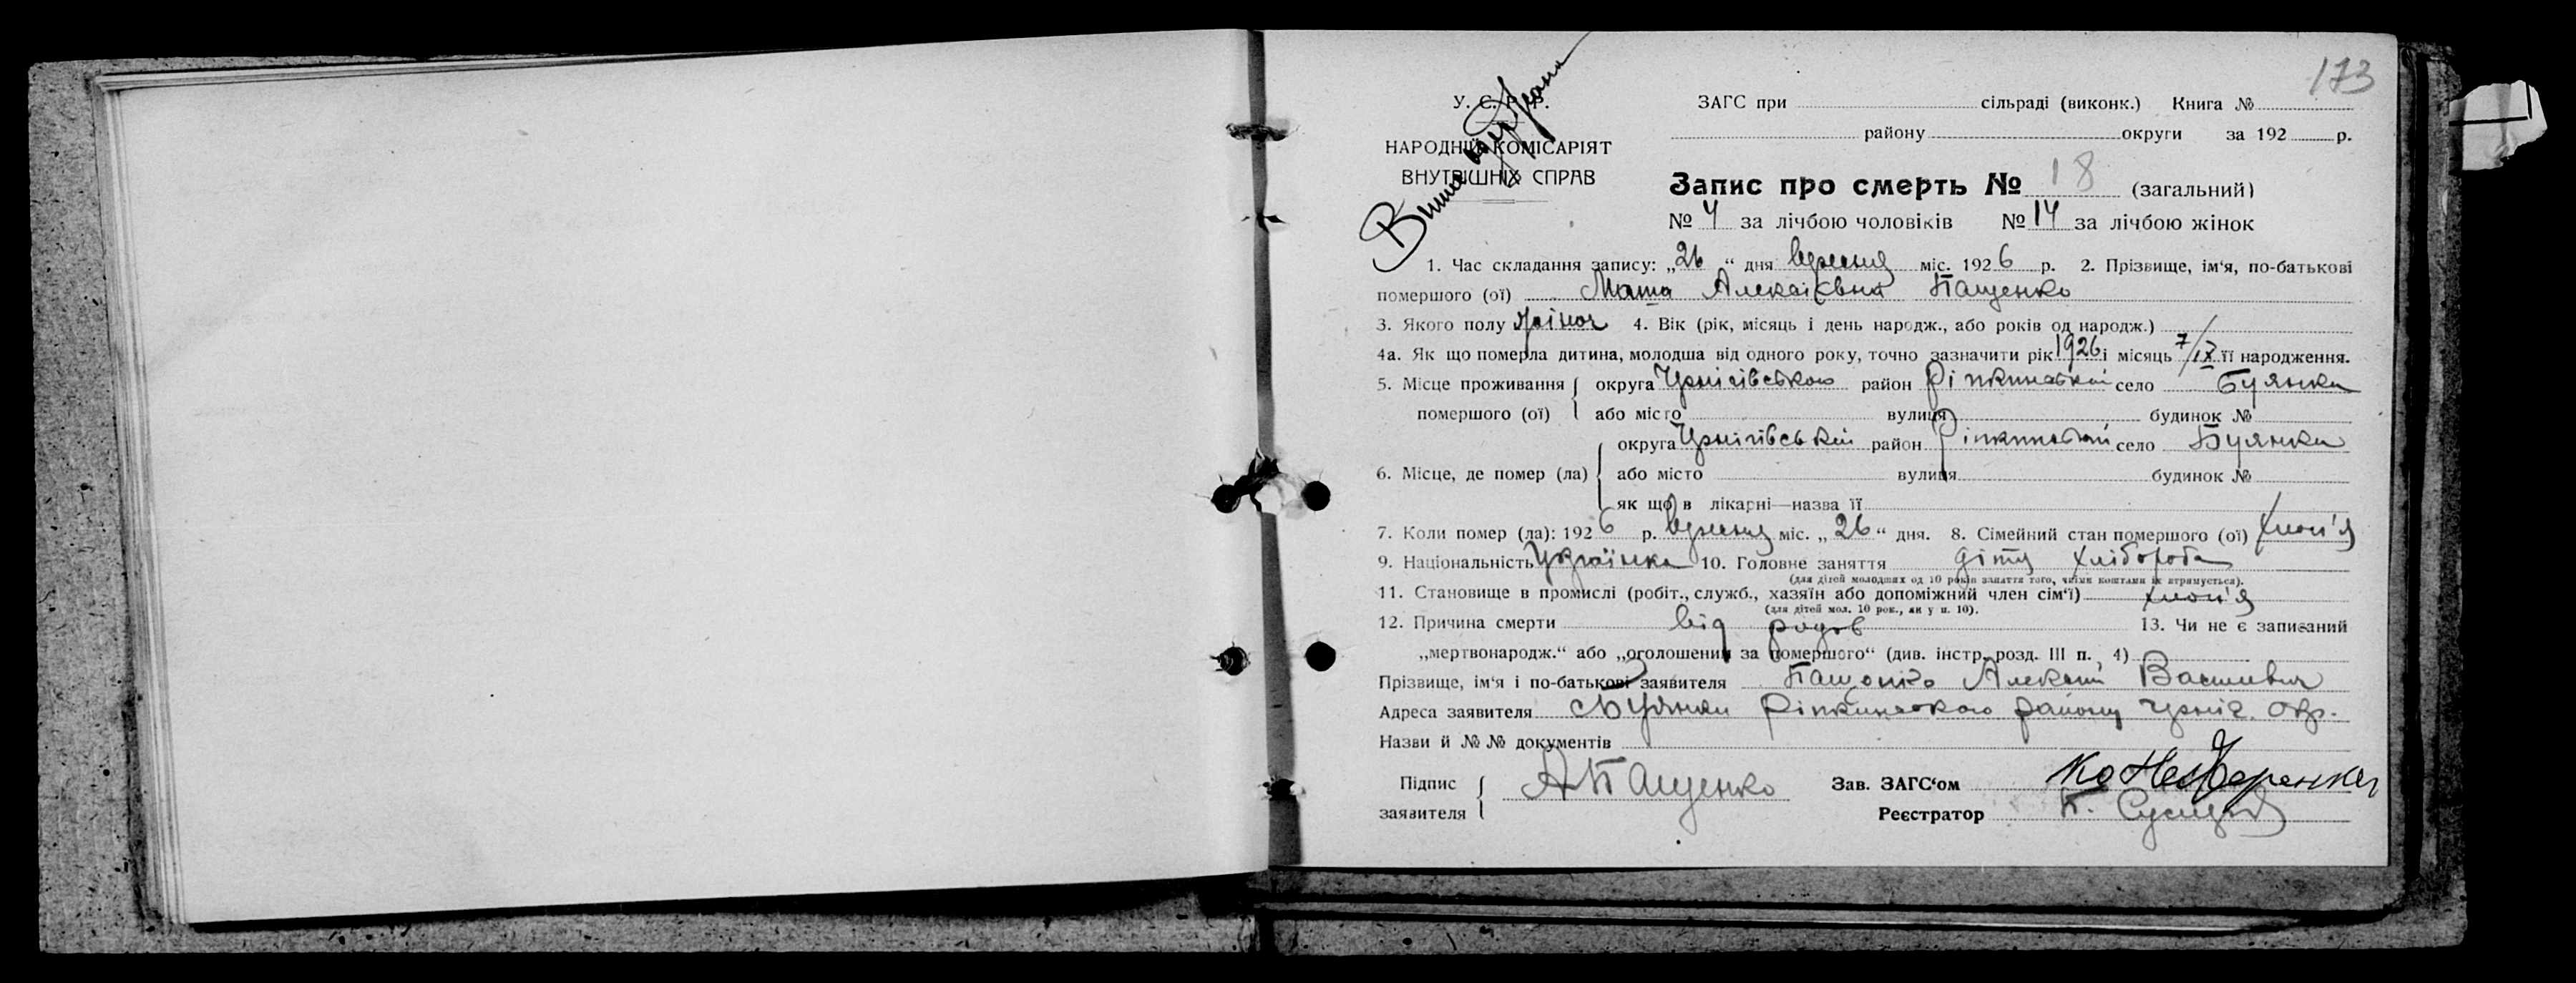 173
У. С. Р. Р.
НАРОДНІЙ КОМІСАРІЯТ
ВНУТРІШНІХ СПРАВ
ЗАГС при сільраді (виконк.) Книга №
району округи за 192 р.
Запис про смерть № 18 (загальний)
№ 4 за лічбою чоловіків № 14 за лічбою жінок
1. Час складання запису: „26“ дня вересня міс. 1926 р. 2. Прізвище, ім‘я, по-батькові
помершого (ої) Пащенко
3. Якого полу жіноч 4. Вік (рік, місяць і день народж., або років од народж.)
4а. Як що померла дитина, молодша від одного року, точно зазначити рік 1926 і місяць 7/IX її народження.
5. Місце проживання округа Чернігівською район Ріпкинський село Буянки
помершого (ої) або місто вулиця будинок №
округа Чернігівській район Ріпкинський село Буянки
6. Місце, де помер (ла) або місто вулиця будинок №
як що в лікарні—назва її
7. Коли помер (ла): 1926 р. вересня міс. „26“ дня. 8. Сімейний стан помершого (ої)
9. Національність Українка 10. Головне заняття дітя хлібороба
(для дітей молодших од 10 років заняття того, чиїми коштами їх втримується).
11. Становище в промислі (робіт., служб., хазяїн або допоміжний член сім‘ї)
(для дітей мол. 10 рок., як у п. 10).
12. Причина смерти від родов 13. Чи не є записаний
„мертвонародж.“ або „оголошений за помершого“ (див. інстр. розд. III п. 4)
Прізвище, ім‘я і по-батькові заявителя Пащенко Алексей
Адреса заявителя с Буянки Ріпкинского району Черніг. Окр.
Назви й № № документів
Підпис
заявителя А Пащенко
Зав. ЗАГС‘ом
Реєстратор П.